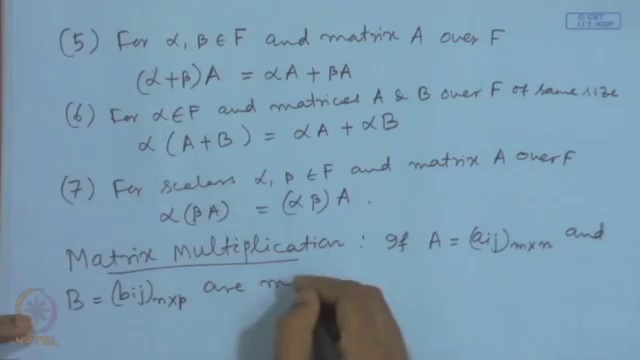 © CET
I.I.T. KGP
(5) For α, β ∈ F and matrix A over F
(α+β)A = αA + βA
(6) For α∈F and matrices A & B over F of same size
α (A+B) = αA + αB
(7) For scalars α, β ∈ F and matrix A over F
α(βA) = (αβ)A.
Matrix Multiplication : If A = (aij)m×n and
B = (bij)n×p are m
NPTEL